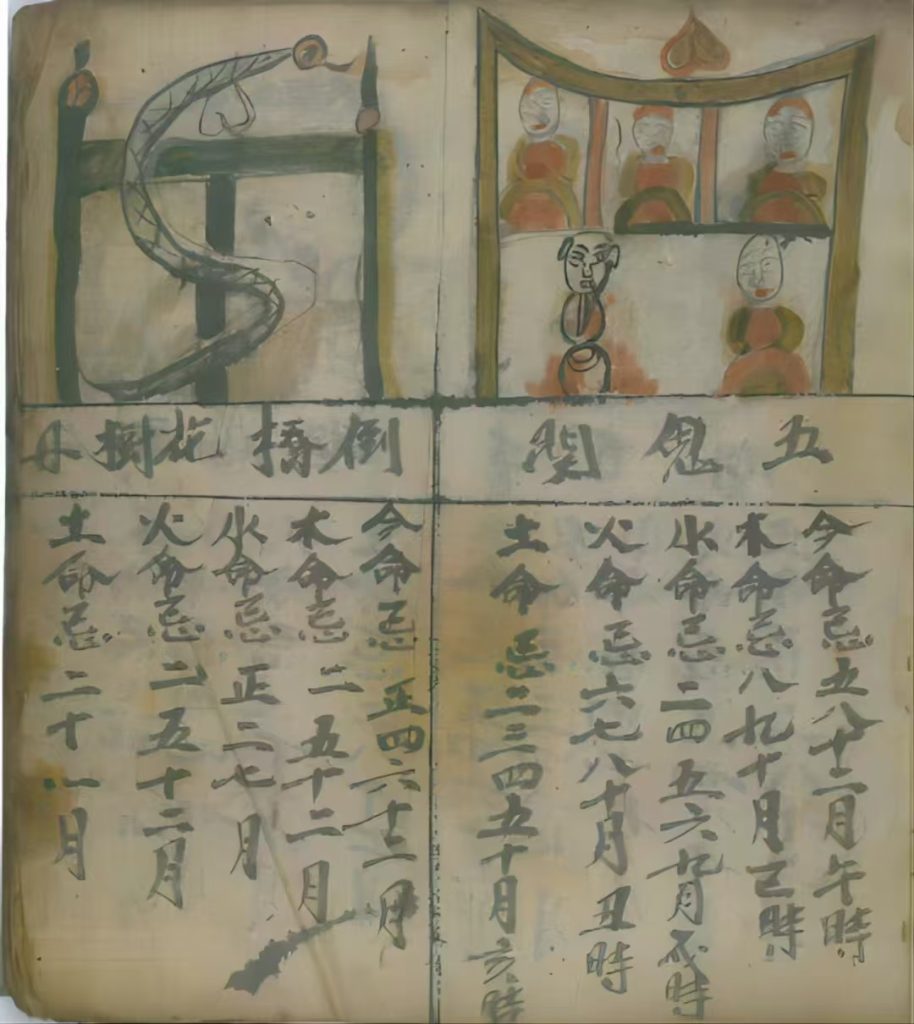 五鬼関
今命忌五八十二月午時
木命忌八九十月巳時
水命忌二四五六九月時
火命忌六七八十月丑時
土命忌二三四五十月亥時
倒橋花樹
今命忌正四六十二月
木命忌二五十二月
水命忌正二七月
火命忌二五十二月
土命忌二十一月